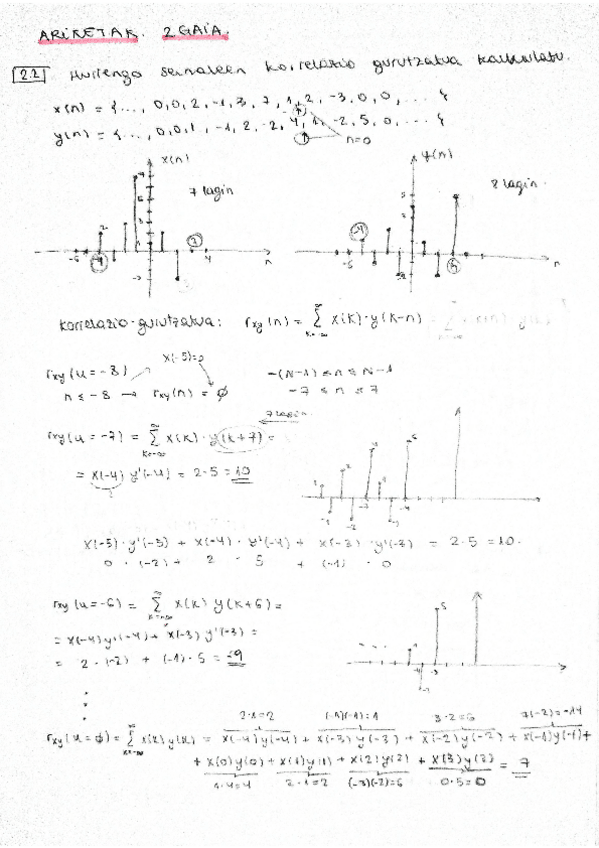 ARIKETAK. 2 GAIA.
2.2 Hurrengo seinaleen korrelazio gurutzatua kalkulatu.
x(n) = {..., 0, 0, 2, -1, 3, 7, 1, 2, -3, 0, 0, ... }
y(n) = {..., 0, 0, 1, -1, 2, -2, 4, 1, -2, 5, 0, ... }
n=0
x(n)
7 lagin
y(n)
8 lagin
korrelazio gurutzatua: rxy(n) = ∑ x(k)·y(k-n)
x(-5)=0
rxy(n = -8)
n ≤ -8 → rxy(n) = ∅
-(N-1) ≤ n ≤ N-1
-7 ≤ n ≤ 7
7 lagin
rxy(n = -7) = ∑ x(k)·y(k+7) =
= x(-4) y'(-4) = 2·5 = 10
x(-5)·y'(-5) + x(-4)·y'(-4) + x(-3)·y'(-3) = 2·5 = 10
0·(-2) + 2·5 + (-1)·0
rxy(n = -6) = ∑ x(k) y(k+6) =
= x(-4) y'(-4) + x(-3) y'(-3) =
= 2·(-2) + (-1)·5 = -9
2·1=2 (-1)(-1)=1 3·2=6 7(-2)=-14
rxy(n=∅) = ∑ x(k) y(k) = x(-4)y(-4) + x(-3)y(-3) + x(-2)y(-2) + x(-1)y(-1) +
+ x(0)y(0) + x(1)y(1) + x(2)y(2) + x(3)y(3) = 7
1·4=4 2·1=2 (-3)(-2)=6 0·5=0